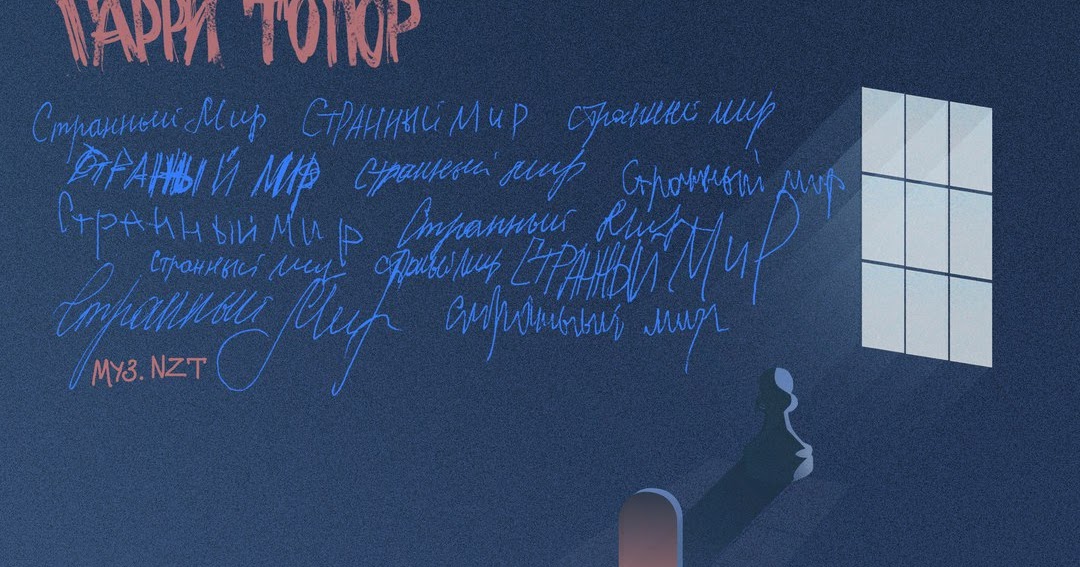 ГАРРИ ТОПОР
Странный Мир СТРАННЫЙ МИР странный мир
СТРАННЫЙ МИР странный мир Странный мир
СТРАННЫЙ МИР Странный Мир
странный мир странный мир СТРАННЫЙ МИР
Странный Мир Странный мир
МУЗ. NZT